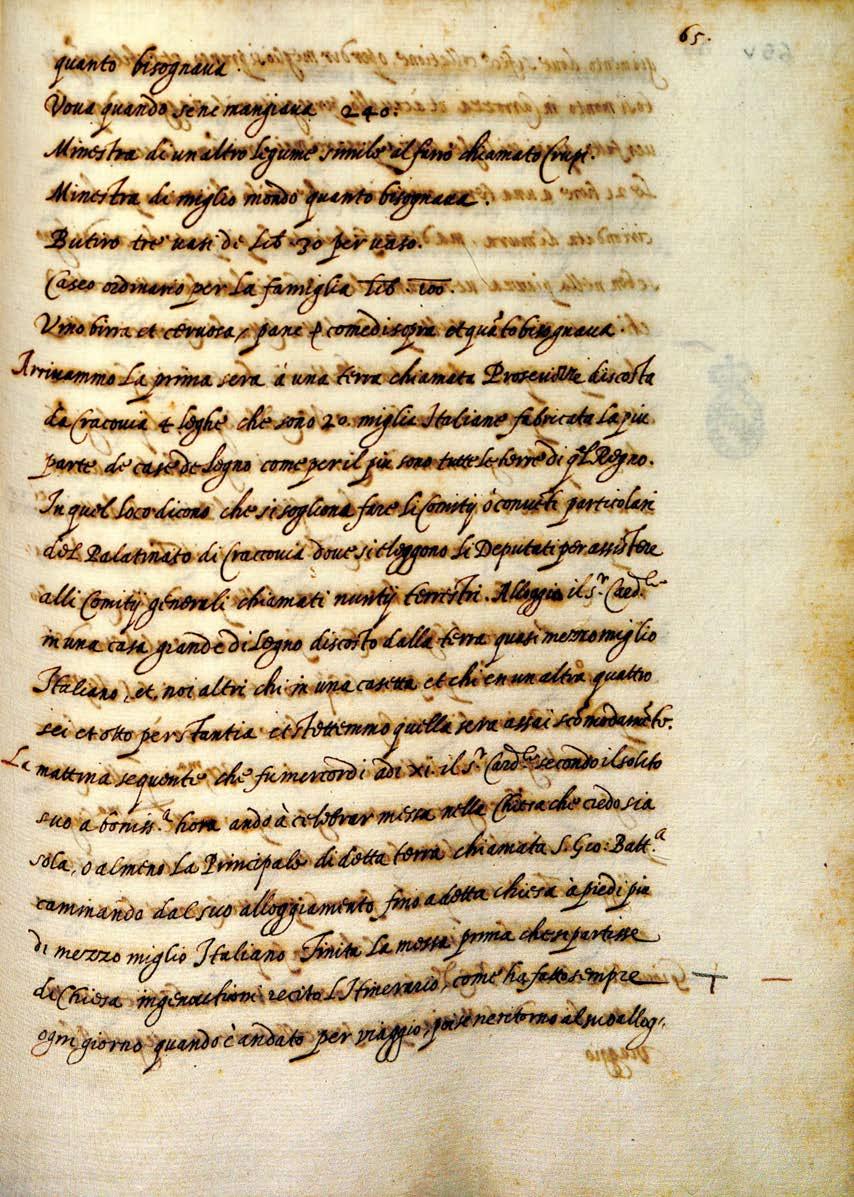 65.
quanto bisognava.
Vova quando sene mangiava 240.
Minestra di un'altro legume simile al farro chiamato Crupi.
Minestra di miglio mondo quanto bisognava.
Butiro tre vasi de lib. 30 per vaso.
Caseo ordinario per la famiglia lib. 100.
Vino birra et cervosa, pane come di sopra et quãto bisognava.
Arrivammo la prima sera à una terra chiamata discosta
da Cracovia 4 leghe che sono 20. miglia Italiane fabricata la piu
parte de case de legno come per il piu sono tutte le terre di q.l Regno.
In quel loco dicono che si sogliono fare li Comitij ò conventi particolari
del Palatinato di Craccovia dove si eleggono li Deputati per assistere
alli Comitij generali chiamati nuntij terrestri. Alloggio il s.r Card.le
in una casa grande di legno discosto dalla terra quasi mezzo miglio
Italiano, et noi altri chi in una casetta et chi en un altra quattro
sei et otto per stantia et stettemmo quella sera assai scõmodamẽte.
La mattina sequente che fu mercordi adi xi. il s.r Card.le secondo il solito
suo a boniss.a hora andò à celebrar messa nella Chiesa che credo sia
sola, o almeno la Principale di detta terra chiamata S. Gio: Batt.a
caminando dal suo alloggiamento fino a detta chiesa à piedi piu
di mezzo miglio Italiano. Finita la messa prima che si partisse
di Chiesa recito l'Itinerario, come ha fatto sempre
ogni giorno quando è andato per viaggio, poi se ne ritorno al suo allog,